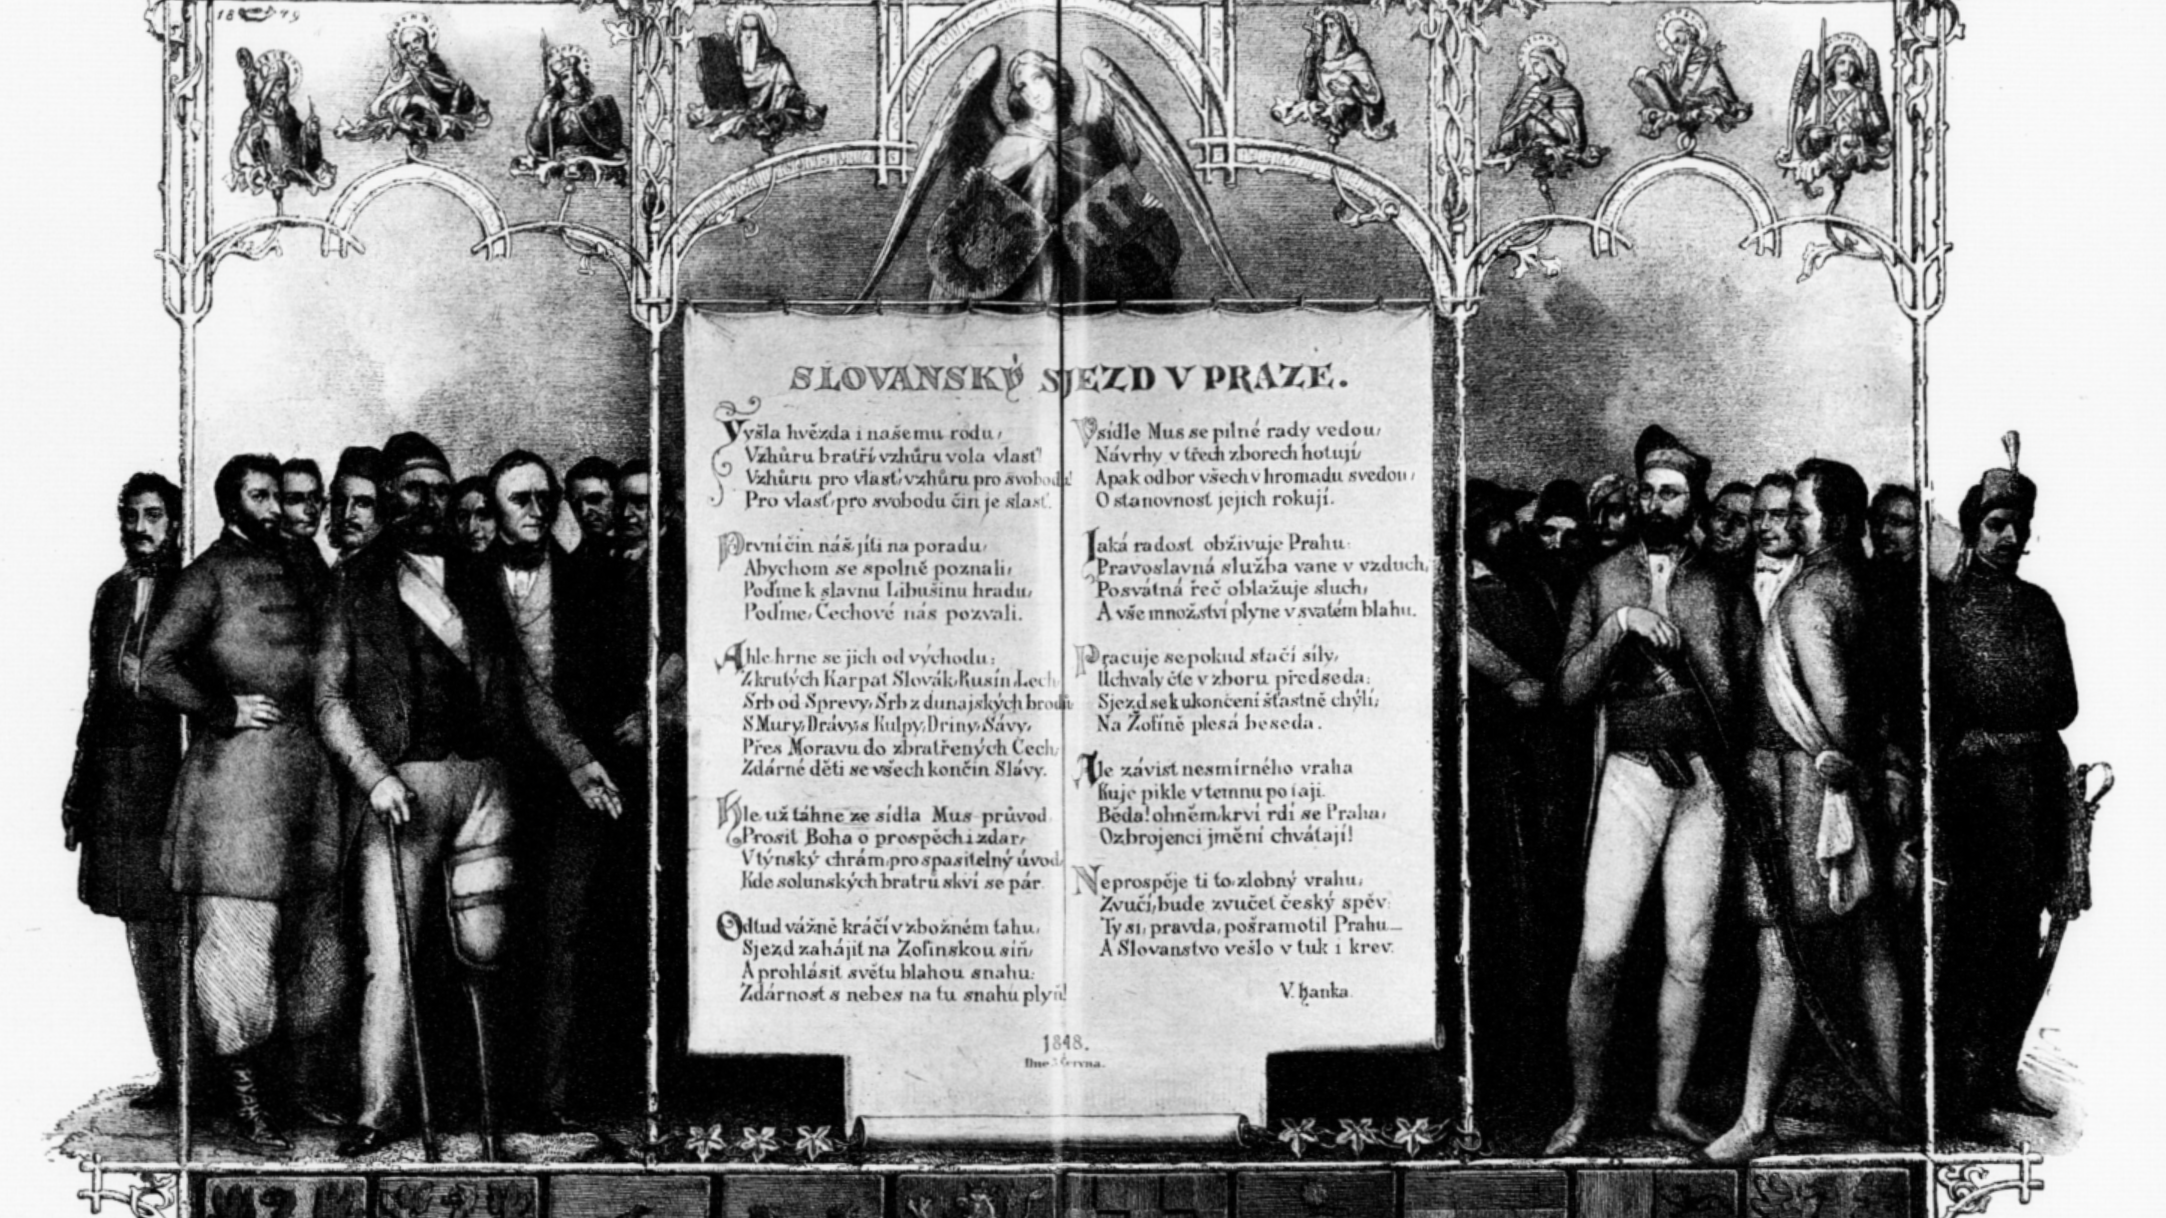 SLOVANSKÝ SJEZD V PRAZE.
Vyšla hvězda i našemu rodu,
Vzhůru bratří vzhůru vola vlasť!
Vzhůru pro vlasť, vzhůru pro svobodu!
Pro vlasť, pro svobodu čin je slast.
První čin náš, jíti na poradu,
Abychom se spolně poznali,
Poďme k slavnu Libušinu hradu,
Poďme, Čechové nás pozvali.
Ahle hrne se jich od východu:
Z krutých Karpat Slovák, Rusín, Lech
Srb od Sprevy, Srb z dunajských brodů
S Mury, Drávy, s Kulpy, Driny, Sávy,
Přes Moravu do zbratřených Čech,
Zdárné děti se všech končin Slávy.
Hle už táhne ze sídla Mus průvod
Prosit Boha o prospěch i zdar,
V týnský chrám, pro spasitelný úvod,
Kde solunských bratrů skví se pár.
Odtud vážně kráčí v zbožném tahu,
Sjezd zahájit na Žofinskou síň,
A prohlásit světu blahou snahu:
Zdárnost s nebes na tu snahu plyň!
V sídle Mus se pilné rady vedou,
Návrhy v třech zborech hotují,
A pak odbor všech v hromadu svedou,
O stanovnost jejich rokují.
Jaká radost obživuje Prahu:
Pravoslavná služba vane v vzduch,
Posvátná řeč oblažuje sluch,
A vše množství plyne v svatém blahu.
Pracuje se pokud stačí síly,
Uchvaly čte v zboru předseda:
Sjezd se k ukončení šťastně chýlí,
Na Žofíně plesá beseda.
Ale závist nesmírného vraha
Kuje pikle v temnu potají.
Běda! ohněm, krví rdí se Praha,
Ozbrojenci jmění chvátají!
Neprospěje ti to, zlobný vrahu,
Zvučí, bude zvučet český spěv:
Ty si, pravda, pošramotil Prahu—
A Slovanstvo vešlo v tuk i krev.
V. Hanka.
1848.